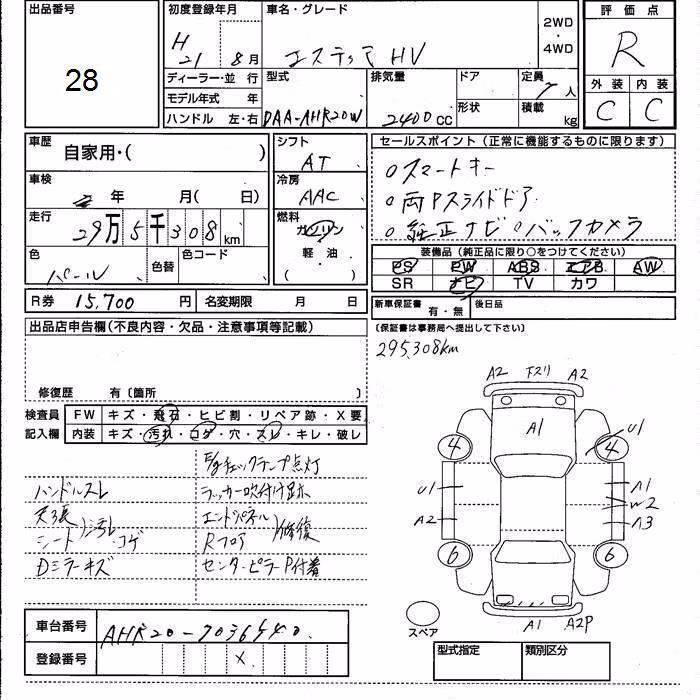 出品番号
28
初度登録年月
H 21 8月
車名・グレード
エスティマ HV
2WD・4WD
評価点
R
ディーラー・並行
モデル年式 年
ハンドル 左・右
型式
DAA-AHR20W
排気量
2400cc
ドア
形状
定員
7人
積載
kg
外装 内装
C C
車歴
自家用・( )
車検
年 月( 日)
走行
29万5千308km
色
パール
色替
色コード
シフト
AT
冷房
AAC
燃料
ガソリン
軽・油
( )
セールスポイント(正常に機能するものに限ります)
○スマートキー
○両Pスライドドア
○純正ナビ ○バックカメラ
装備品(純正品に限り○をつけてください)
PS PW ABS エアB AW
SR ナビ TV カワ
R券 15,700円
名変期限 月 日
新車保証書 有・無
後日品
〔保証書は事務局へ提出して下さい〕
出品店申告欄(不良内容・欠品・注意事項等記載)
295,308km
修復歴 有〔箇所 〕
検査員記入欄
FW キズ・飛石・ヒビ割・リペア跡・X要
内装 キズ・汚れ・コゲ・穴・スレ・キレ・破レ
E/gチェックランプ点灯
ハンドルスレ
ラッカー吹付け跡
天張
シート
汚れ
コゲ
エンドパネル
Rフロア
修復
Dミラーキズ
センターピラーP付着
A2 下スリ A2
A1
4 4
U1
U1 A1
W2
A2 A3
6 6
スペア
A1 A2P
車台番号
AHR20-7036540
登録番号
X
型式指定 類別区分